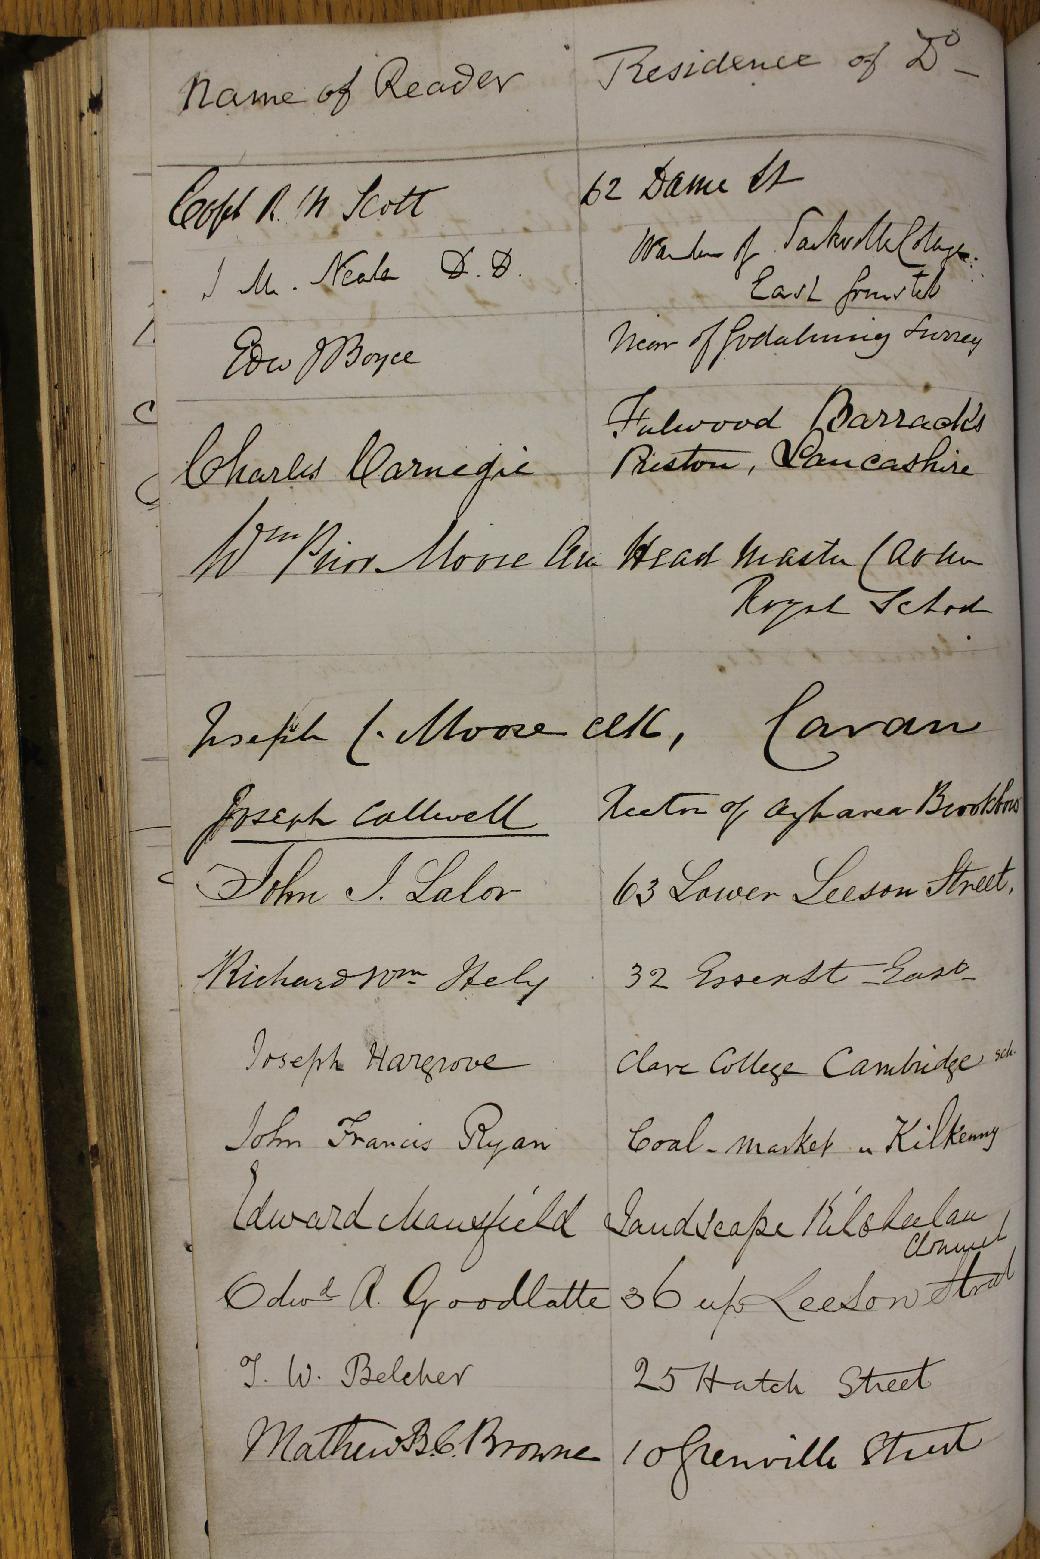 Name of Reader Residence of Do
Capt R. M Scott 62 Dame St
J. M. Neale D.D. Warden of Sackville College
East Grinsted
Edw J Boyce Vicar of Godalming Surrey
Charles Carnegie Fulwood Barracks
Preston, Lancashire
Wm Prior Moore Head Master Cavan
Royal School
Joseph C. Moore Clk, Cavan
Joseph Rector of Aghavea
John J. Lalor 63 Lower Leeson Street,
Richard Wm Hely 32 Essex St East
Joseph Hargrove Clare College Cambridge
John Francis Ryan Coal-market Kilkenny
Edward Mansfield Landscape Kilsheelan
Clonmel
Edwd R. Goodlatte 36 up Leeson Street
T. W. Belcher 25 Hatch Street
Mathew B.C. Browne 10 Grenville Street